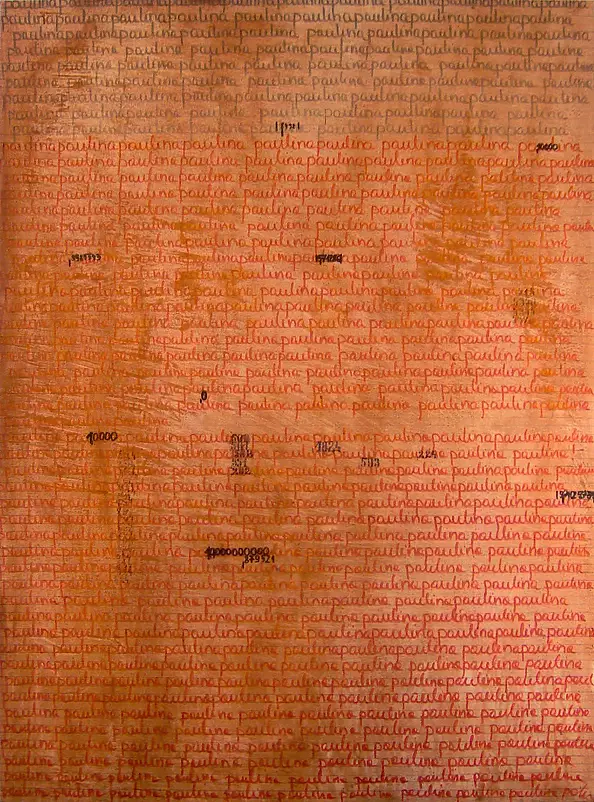 paulina paulina paulina paulina paulina paulina paulina paulina paulina
paulina paulina paulina paulina paulina paulina paulina paulina paulina
paulina paulina paulina paulina paulina paulina paulina paulina paulina
paulina paulina paulina paulina paulina paulina paulina paulina paulina
paulina paulina paulina paulina paulina paulina paulina paulina paulina
paulina paulina paulina paulina paulina paulina paulina paulina paulina
paulina paulina paulina paulina paulina paulina paulina paulina paulina
paulina paulina paulina paulina paulina paulina paulina paulina paulina
paulina paulina paulina paulina paulina paulina paulina paulina
paulina paulina paulina paulina paulina paulina paulina paulina
paulina paulina paulina paulina paulina paulina paulina paulina paulina
paulina paulina paulina paulina paulina paulina paulina paulina paulina
paulina paulina paulina paulina paulina paulina paulina paulina paulina
paulina paulina paulina paulina paulina paulina paulina paulina paulina
paulina paulina paulina paulina paulina paulina paulina paulina paulina
paulina paulina paulina paulina paulina paulina paulina paulina paulina
paulina paulina paulina paulina paulina paulina paulina paulina
paulina paulina paulina paulina paulina paulina paulina paulina paulina
paulina paulina paulina paulina paulina paulina paulina paulina paulina
paulina paulina paulina paulina paulina paulina paulina paulina
paulina paulina paulina paulina paulina paulina paulina paulina paulina
paulina paulina paulina paulina paulina paulina paulina paulina paulina
paulina paulina paulina paulina paulina paulina paulina paulina paulina
paulina paulina paulina paulina paulina paulina paulina paulina paulina
paulina paulina paulina paulina paulina paulina paulina paulina paulina
paulina paulina paulina 0 paulina paulina paulina paulina paulina paulina
paulina paulina
10000 paulina paulina paulina paulina paulina paulina paulina
paulina paulina paulina 1824 paulina 224 paulina paulina
paulina paulina paulina paulina 593 paulina paulina paulina
paulina paulina paulina paulina paulina paulina paulina paulina paulina
paulina paulina paulina paulina paulina paulina paulina paulina
paulina paulina paulina paulina paulina paulina paulina paulina paulina
paulina paulina paulina paulina paulina paulina paulina paulina paulina
paulina paulina paulina 10000000000 paulina paulina paulina paulina paulina
paulina paulina paulina paulina 879521 paulina paulina paulina paulina
paulina paulina paulina paulina paulina paulina paulina paulina paulina
paulina paulina paulina paulina paulina paulina paulina paulina paulina
paulina paulina paulina paulina paulina paulina paulina paulina paulina
paulina paulina paulina paulina paulina paulina paulina paulina paulina
paulina paulina paulina paulina paulina paulina paulina paulina paulina
paulina paulina paulina paulina paulina paulina paulina paulina paulina
paulina paulina paulina paulina paulina paulina paulina paulina paulina
paulina paulina paulina paulina paulina paulina paulina paulina paulina
paulina paulina paulina paulina paulina paulina paulina paulina paulina
paulina paulina paulina paulina paulina paulina paulina paulina paulina
paulina paulina paulina paulina paulina paulina paulina paulina paulina
paulina paulina paulina paulina paulina paulina paulina paulina paulina
paulina paulina paulina paulina paulina paulina paulina paulina paulina
paulina paulina paulina paulina paulina paulina paulina paulina paulina